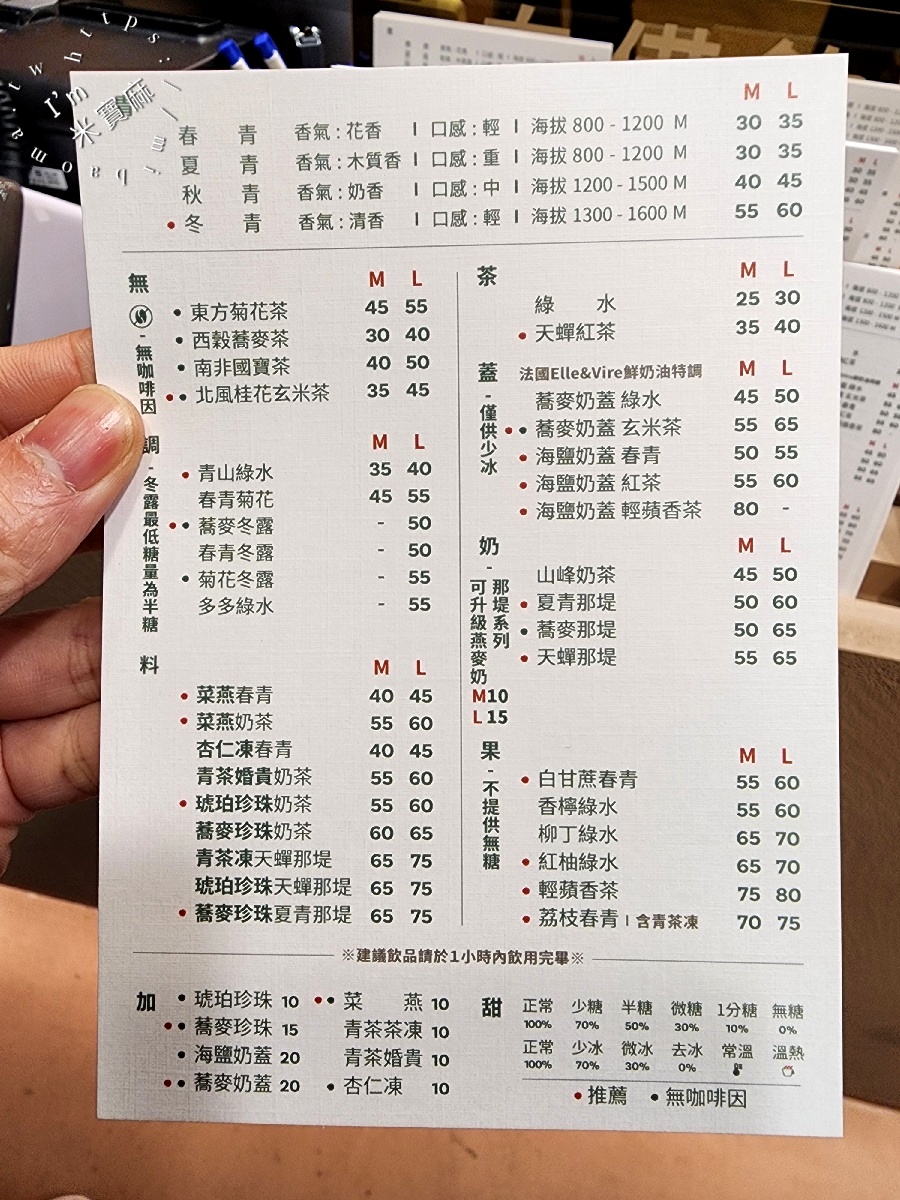 I'm 米寶麻
https:
M L
春 青 香氣:花香 | 口感:輕 | 海拔 800 - 1200 M 30 35
夏 青 香氣:木質香 | 口感:重 | 海拔 800 - 1200 M 30 35
秋 青 香氣:奶香 | 口感:中 | 海拔 1200 - 1500 M 40 45
• 冬 青 香氣:清香 | 口感:輕 | 海拔 1300 - 1600 M 55 60
無 - 無咖啡因
M L
• 東方菊花茶 45 55
• 西穀蕎麥茶 30 40
• 南非國寶茶 40 50
• • 北風桂花玄米茶 35 45
調 - 冬露最低糖量為半糖
M L
• 青山綠水 35 40
春青菊花 45 55
• • 蕎麥冬露 - 50
春青冬露 - 50
• 菊花冬露 - 55
多多綠水 - 55
料
M L
• 菜燕春青 40 45
• 菜燕奶茶 55 60
杏仁凍春青 40 45
青茶婚貴奶茶 55 60
• 琥珀珍珠奶茶 55 60
蕎麥珍珠奶茶 60 65
青茶凍天蟬那堤 65 75
琥珀珍珠天蟬那堤 65 75
• 蕎麥珍珠夏青那堤 65 75
茶
M L
綠 水 25 30
• 天蟬紅茶 35 40
蓋 - 僅供少冰
法國Elle&Vire鮮奶油特調 M L
蕎麥奶蓋 綠水 45 50
• • 蕎麥奶蓋 玄米茶 55 65
• 海鹽奶蓋 春青 50 55
• 海鹽奶蓋 紅茶 55 60
• 海鹽奶蓋 輕蘋香茶 80 -
奶 - 那堤系列
可升級燕麥奶
M10
L 15
M L
山峰奶茶 45 50
• 夏青那堤 50 60
• 蕎麥那堤 50 65
• 天蟬那堤 55 65
果 - 不提供無糖
M L
• 白甘蔗春青 55 60
香檸綠水 55 60
柳丁綠水 65 70
• 紅柚綠水 65 70
• 輕蘋香茶 75 80
• 荔枝春青 | 含青茶凍 70 75
※建議飲品請於1小時內飲用完畢※
加
• 琥珀珍珠 10
• • 蕎麥珍珠 15
• 海鹽奶蓋 20
• • 蕎麥奶蓋 20
• • 菜 燕 10
青茶茶凍 10
青茶婚貴 10
• 杏仁凍 10
甜
正常 少糖 半糖 微糖 1分糖 無糖
100% 70% 50% 30% 10% 0%
正常 少冰 微冰 去冰 常溫 溫熱
100% 70% 30% 0%
• 推薦 • 無咖啡因